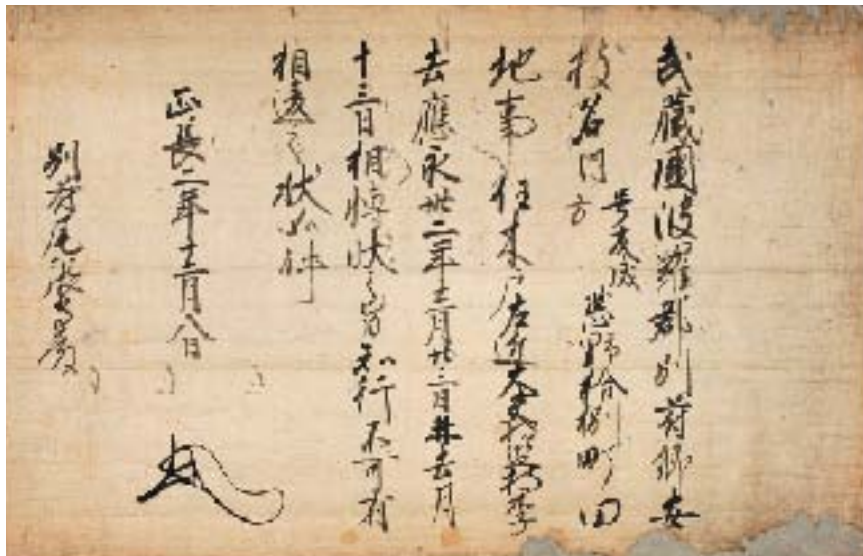 武藏國波羅郡別府郷安
枝名内方 号友成 惣席拾捌町田
地事任木戸左近大夫
去應永卅二年十二月廿三日并去月
十三日相博状之旨知行不可有
相違之状如件
正長二年十二月八日
別府尾張入道殿